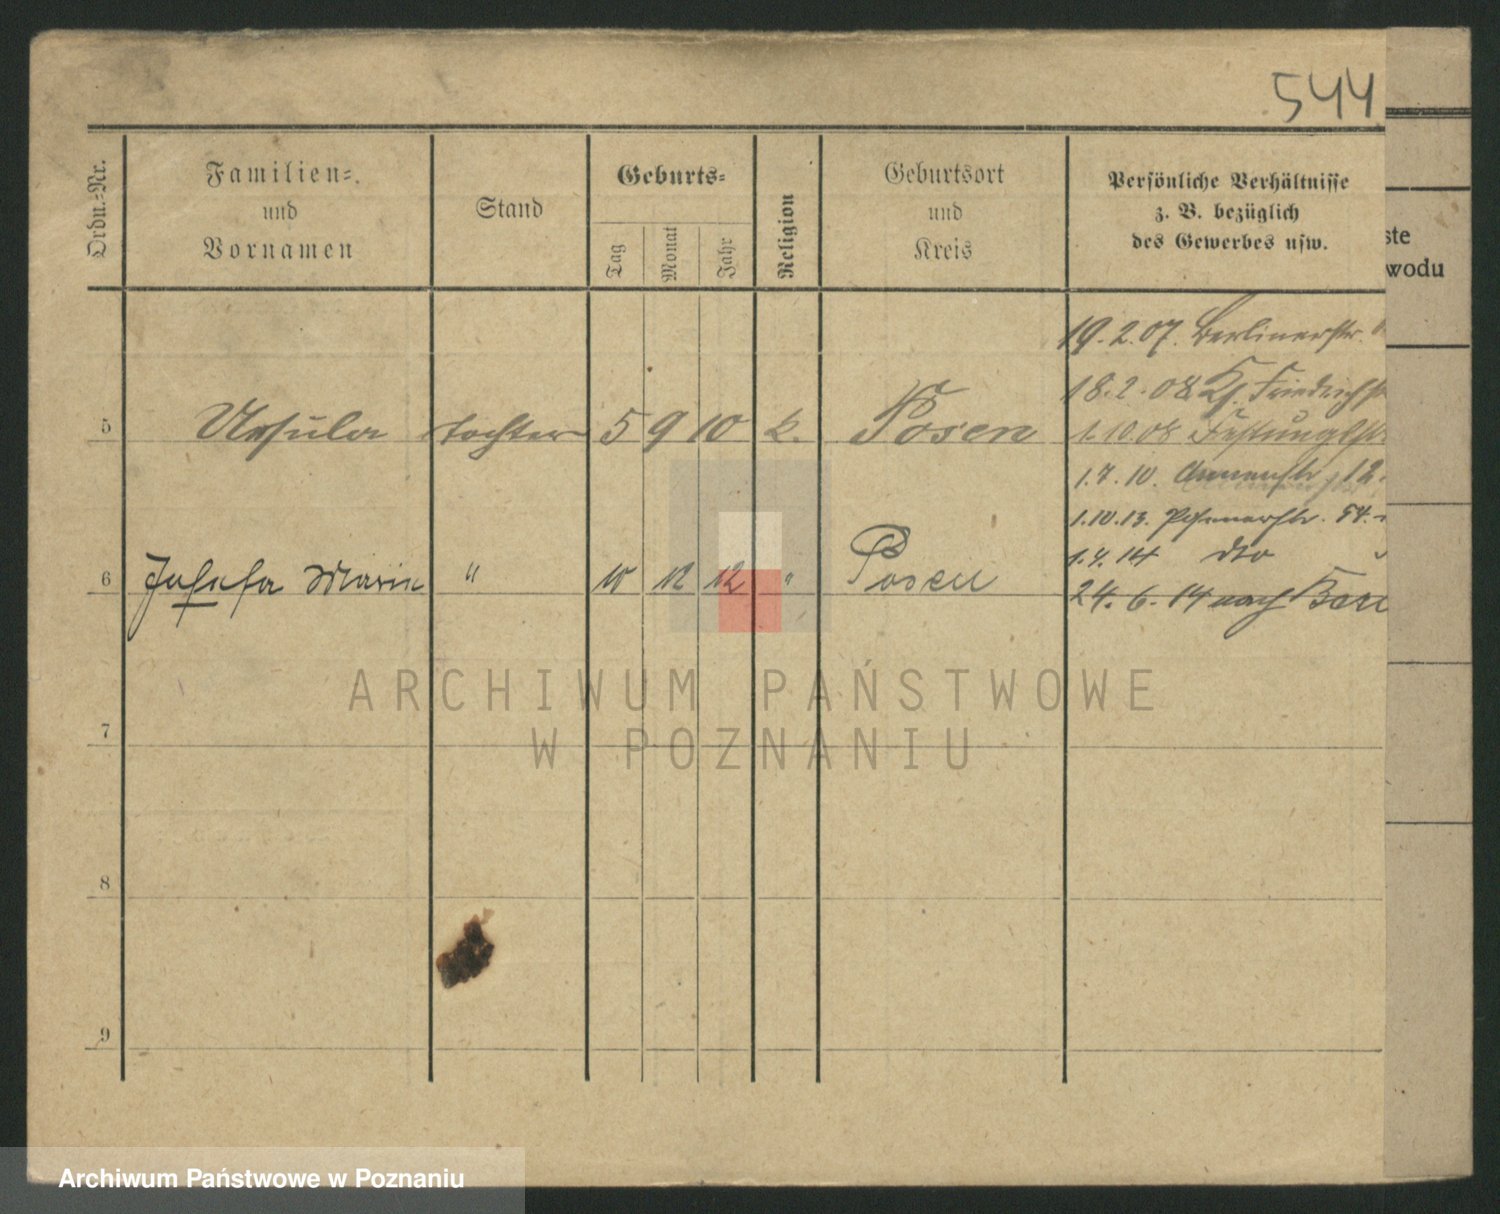 544
Ordn.-Nr.
Familien-
und
Vornamen
Stand
Geburts-
Tag
Monat
Jahr
Religion
Geburtsort
und
Kreis
Persönliche Verhältnisse
z. B. bezüglich
des Gewerbes usw.
ste
wodu
19.2.07. Berlinerstr.
18.2.08 Kl. Friedrichst
5 Ursula tochter 5 9 10 k. Posen
1.10.08
1.7.10. Annenstr. 12.
1.10.13. 54.
1.4.14 dto
6 Josefa Marie " 10 12 12 " Posen
24.6.14 nach
7
8
9
ARCHIWUM PAŃSTWOWE
W POZNANIU
Archiwum Państwowe w Poznaniu